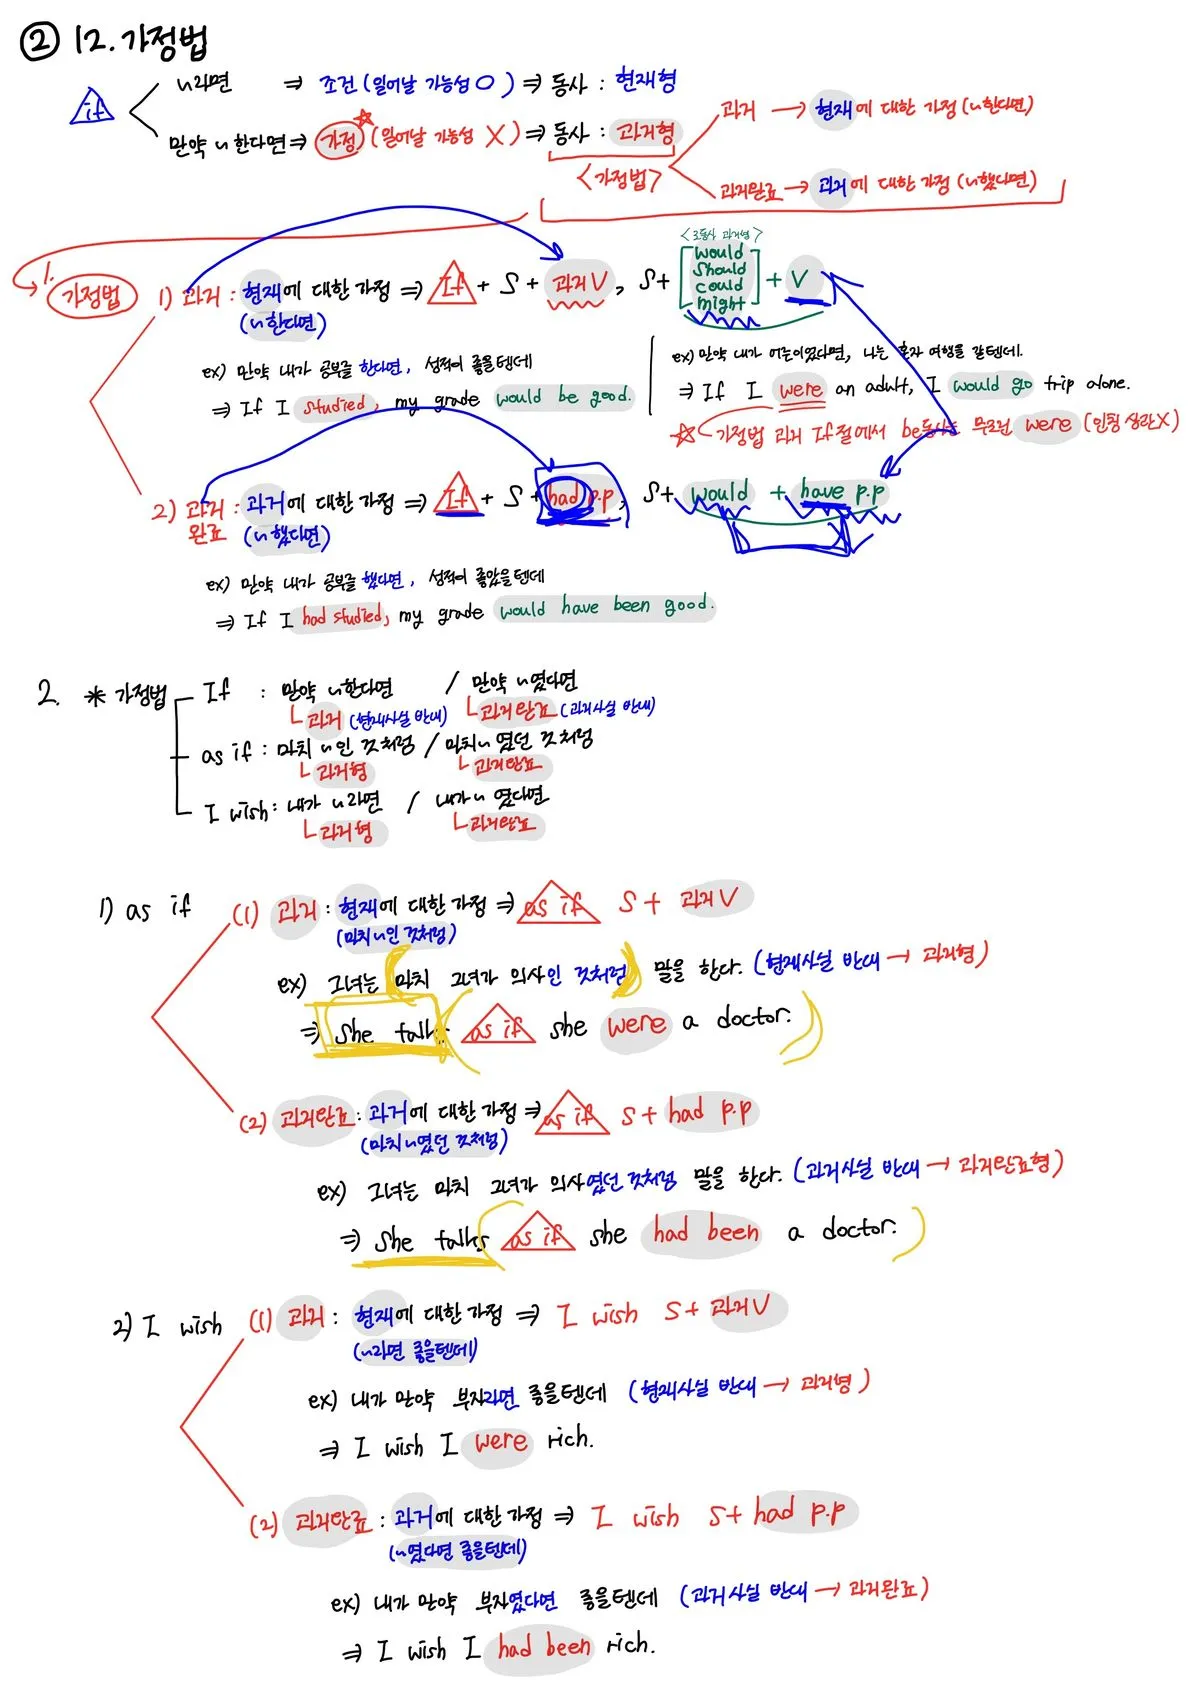 ② 12. 가정법
if
~라면 ⇒ 조건 (일어날 가능성 O) ⇒ 동사 : 현재형
만약 ~한다면 ⇒ 가정 ☆ (일어날 가능성 X) ⇒ 동사 : 과거형
<가정법>
과거 → 현재에 대한 가정 (~한다면)
과거완료 → 과거에 대한 가정 (~했다면)
1.
가정법
<조동사 과거형>
1) 과거 : 현재에 대한 가정 ⇒ If + S + 과거V, S + [would should could might] + V
(~한다면)
ex) 만약 내가 공부를 한다면, 성적이 좋을텐데
⇒ If I studied, my grade would be good.
ex) 만약 내가 어른이었다면, 나는 혼자 여행을 갈텐데.
⇒ If I were an adult, I would go trip alone.
☆ 가정법 과거 If절에서 be동사는 무조건 were (인칭 상관X)
2) 과거완료 : 과거에 대한 가정 ⇒ If + S + had p.p, S + would + have p.p
(~했다면)
ex) 만약 내가 공부를 했다면, 성적이 좋았을텐데
⇒ If I had studied, my grade would have been good.
2. * 가정법
If : 만약 ~한다면 / 만약 ~였다면
과거 (현재사실 반대) 과거완료 (과거사실 반대)
as if : 마치 ~인 것처럼 / 마치 ~였던 것처럼
과거형 과거완료
I wish : 내가 ~라면 / 내가 ~였다면
과거형 과거완료
1) as if
(1) 과거 : 현재에 대한 가정 ⇒ as if S + 과거V
(마치 ~인 것처럼)
ex) 그녀는 마치 그녀가 의사인 것처럼 말을 한다. (현재사실 반대 → 과거형)
⇒ She talks as if she were a doctor.
(2) 과거완료 : 과거에 대한 가정 ⇒ as if S + had p.p
(마치 ~였던 것처럼)
ex) 그녀는 마치 그녀가 의사였던 것처럼 말을 한다. (과거사실 반대 → 과거완료형)
⇒ She talks as if she had been a doctor.
2) I wish
(1) 과거 : 현재에 대한 가정 ⇒ I wish S + 과거V
(~라면 좋을텐데)
ex) 내가 만약 부자라면 좋을텐데 (현재사실 반대 → 과거형)
⇒ I wish I were rich.
(2) 과거완료 : 과거에 대한 가정 ⇒ I wish S + had p.p
(~였다면 좋을텐데)
ex) 내가 만약 부자였다면 좋을텐데 (과거사실 반대 → 과거완료)
⇒ I wish I had been rich.